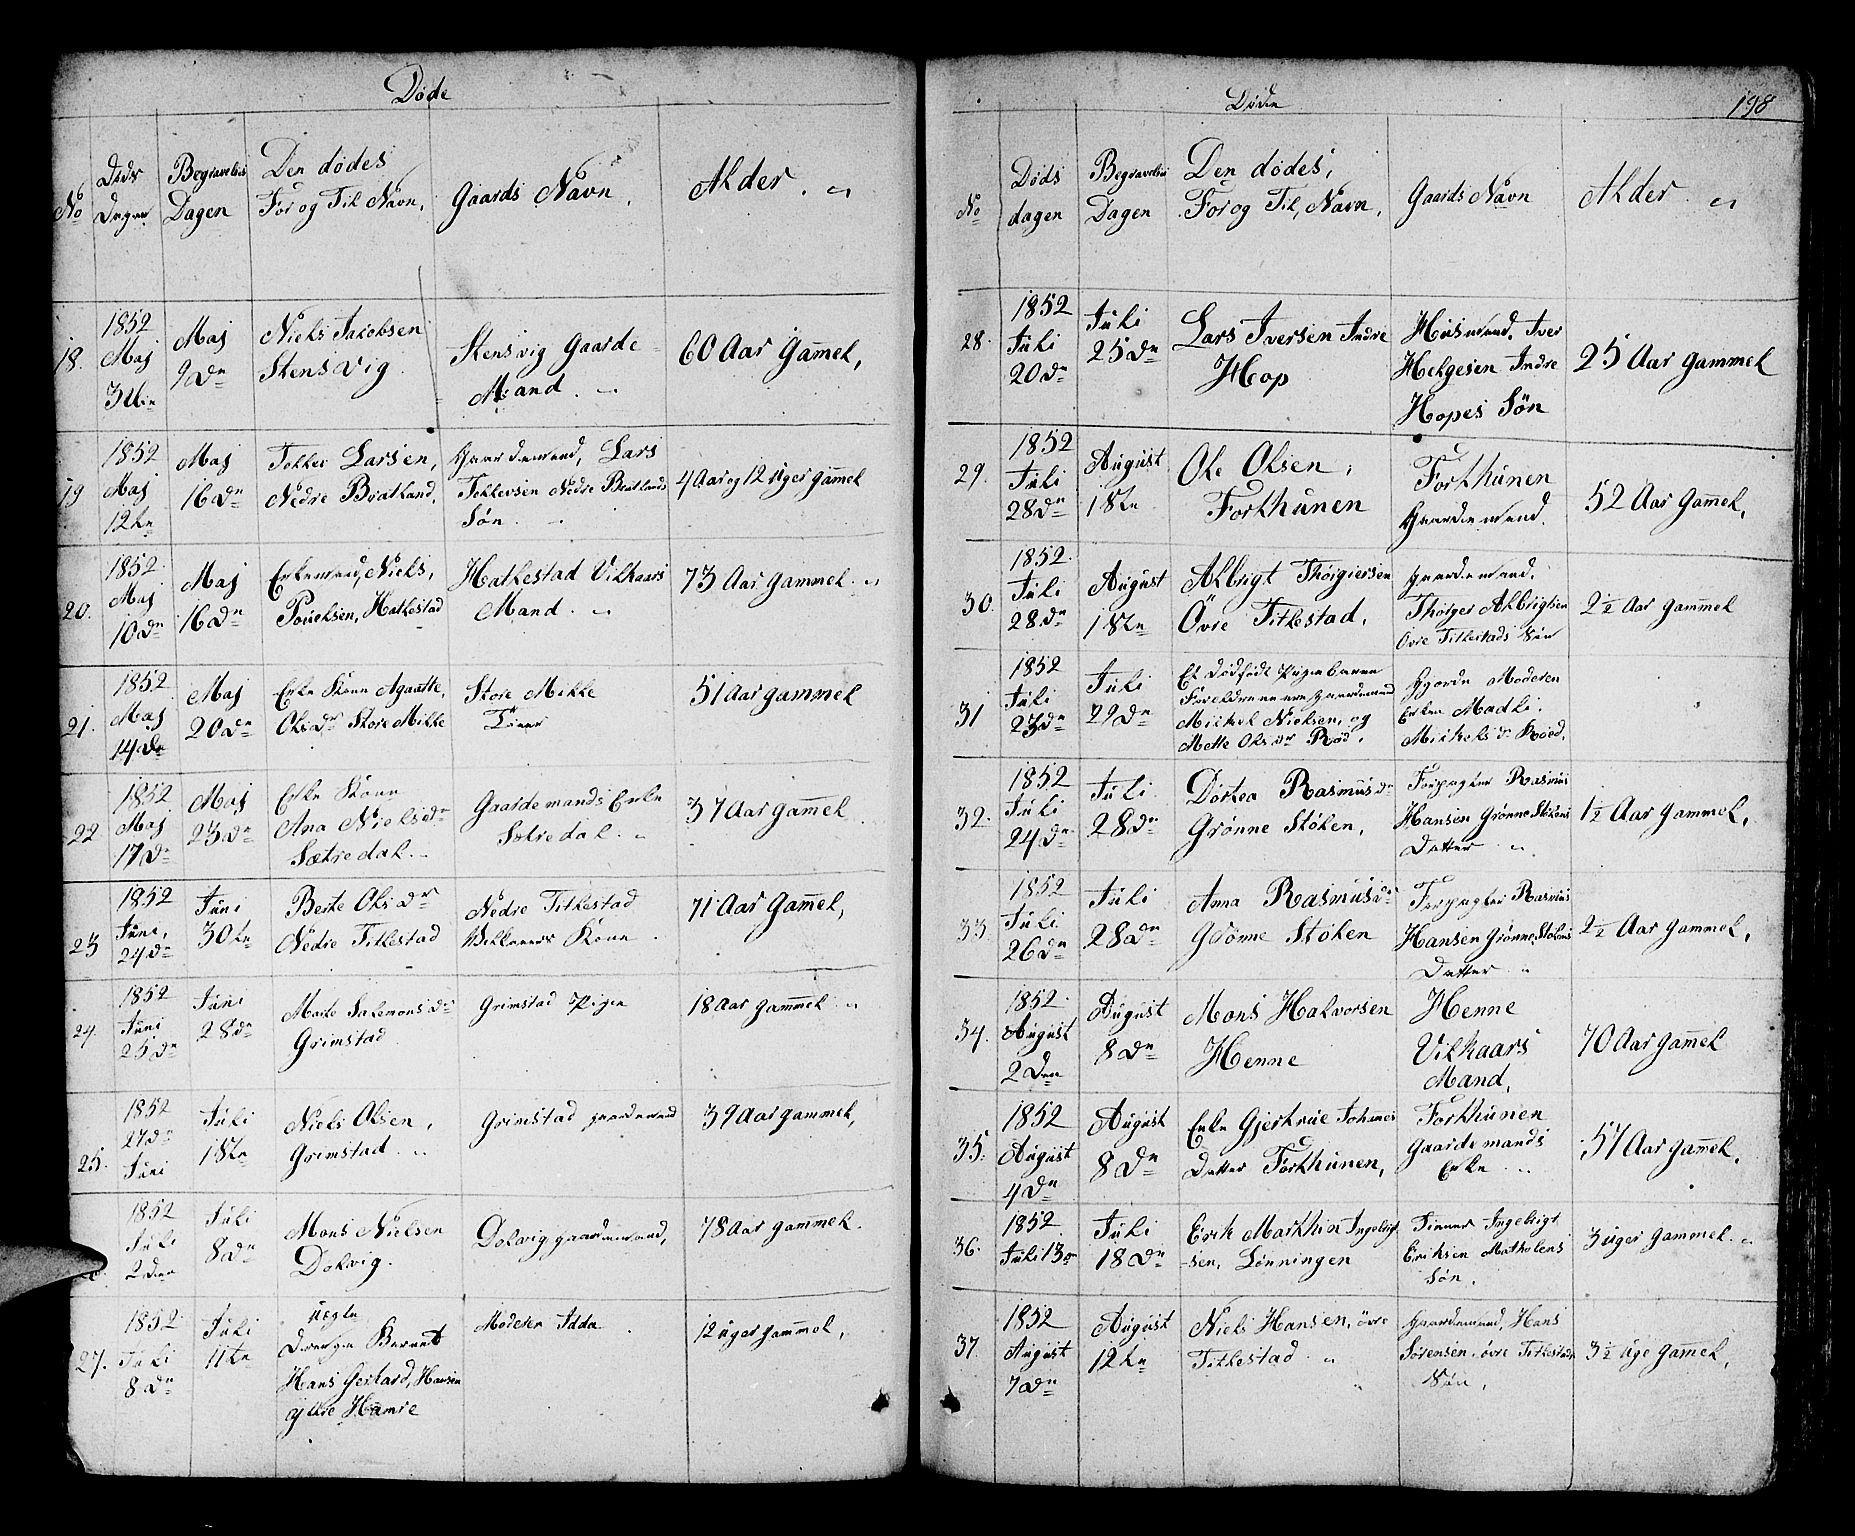 Døde
No
Døds
Dagen
Begravelses
Dagen
Den dødes
For og Til Navn,
Gaards Navn,
Alder. "
18.
1852
Maj
3die
Maj
9de
Niels Jakobsen
Stensvig
Stensvig Gaarde-
Mand. "
60 Aar Gamel,
19
1852
Maj
12te
Maj
16de
Tollev Larsen,
Nedre Bratland,
Gaardemand, Lars
Tollevsen Nedre Bratlands
Søn. "
4 Aar og 12 uger gamel
20.
1852
Maj
10de
Maj
16de
Enkemand, Niels,
Pouelsen, Hatlestad
Hatlestad Vilkaars
Mand. "
73 Aar gammel. "
21.
1852
Maj
14de
Maj
20de
Enke Kone Agaatte,
Olsdr Store Milde
Store Milde
51 Aar gammel
22
1852
Maj
17de
Maj
23de
Enke Kone
Ana Nielsdr
Sætredal. "
Gaardemands Enke
Sætredal. "
37 Aar Gamel
23
1852
Juni,
24de
Juni
30te
Berte Olsdr
Nedre Titlestad
Nedre Titlestad
Vilkaars Kone.
71 Aar Gamel,
24.
1852
Juni
25de
Juni
28de
Marte Salemonsdr
Grimstad
Grimstad Pigen
18 Aar gammel "
25.
1852
27de
Juni
Juli
18te
Niels Olsen,
Grimstad. "
Grimstad gaardemand
39 Aar gammel,
1852
Juli
2den
Juli
8de
Mons Nielsen
Dolvig.
Dolvig gaardemand,
78 Aar gammel.
27.
1852
Juli
8de
Juli
11te
uegte
Drenge Barnet
Hans Gerhard, Hansen
ydtre Hamre
Moderen Adda
12 uger gammel,
Døde
198
No
Døds
dagen
Begravelses
Dagen
Den dødes,
For og Til, Navn,
Gaards Navn
Alder. "
28.
1852
Juli
20de
Juli
25de
Lars Iversen Indre
Hop
Husmand, Iver
Helgesen Indre
Hopes Søn
25 Aar gammel
29.
1852
Juli
28de
August
18te
Ole Olsen,
Forthunen
Forthunen
Gaardemand.
52 Aar Gamel,
30.
1852.
Juli
28de
August
18te
Albrigt Thorgiersen
Övre Titlestad,
Gaardemand.
Thorger Albrigtsen
Övre Titlestads Søn
2½ Aar gammel
31
1852
Juli
23de
Juli
29de
Et dødfødt Pigebarn
Foreldrene ere gaardemand
Mickel Nielsen, og
Mette Olsdr Rød,
Gjorde Moderen
Enken Madli.
Mickelsdr Røed,
32.
1852
Juli
24de
Juli
28de
Dortea Rasmusdr
Grønne Støken,
Forpagter Rasmus
Hansen Grønne Stökens
Datter "
1½ Aar Gammel,
33
1852
Juli
26de
Juli
28de
Anna Rasmusdr
Grønne Støken
Forpagter Rasmus
Hansen Grønne, Stökens
Datter "
2½ Aar gammel,
34.
1852.
August
2den
August
8de
Mons Halvorsen
Henne
Henne
Vilkaars
Mand,
70 Aar gamel
35.
1852
August
4de
August
8de
Enke Gjertrue Johannes
Datter Forthunen,
Forthunen
Gaardemands
Enke "
57 Aar gamel,
36.
1852
Juli 13de
Juli
18de
Erik Marthin Ingebrigt
-sen, Lønningen
Ingebrigt
Eriksen Matholens
Søn.
3 uger gammel. "
37.
1852
August
7de
August
12te
Niels Hansen, övre
Titlestad "
Gaardemand, Hans
Sørensen, øvre Titlestads
Søn,
3½ uge gamel,